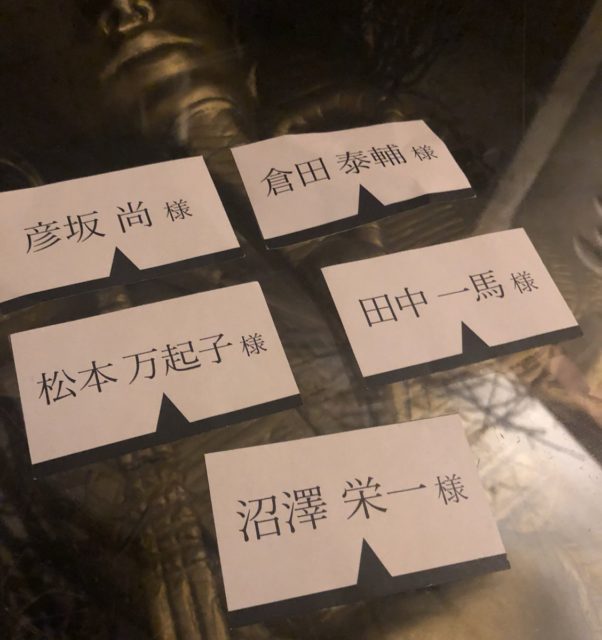 倉田 泰輔 様
彦坂 尚 様
田中 一馬 様
松本 万起子 様
沼澤 栄一 様